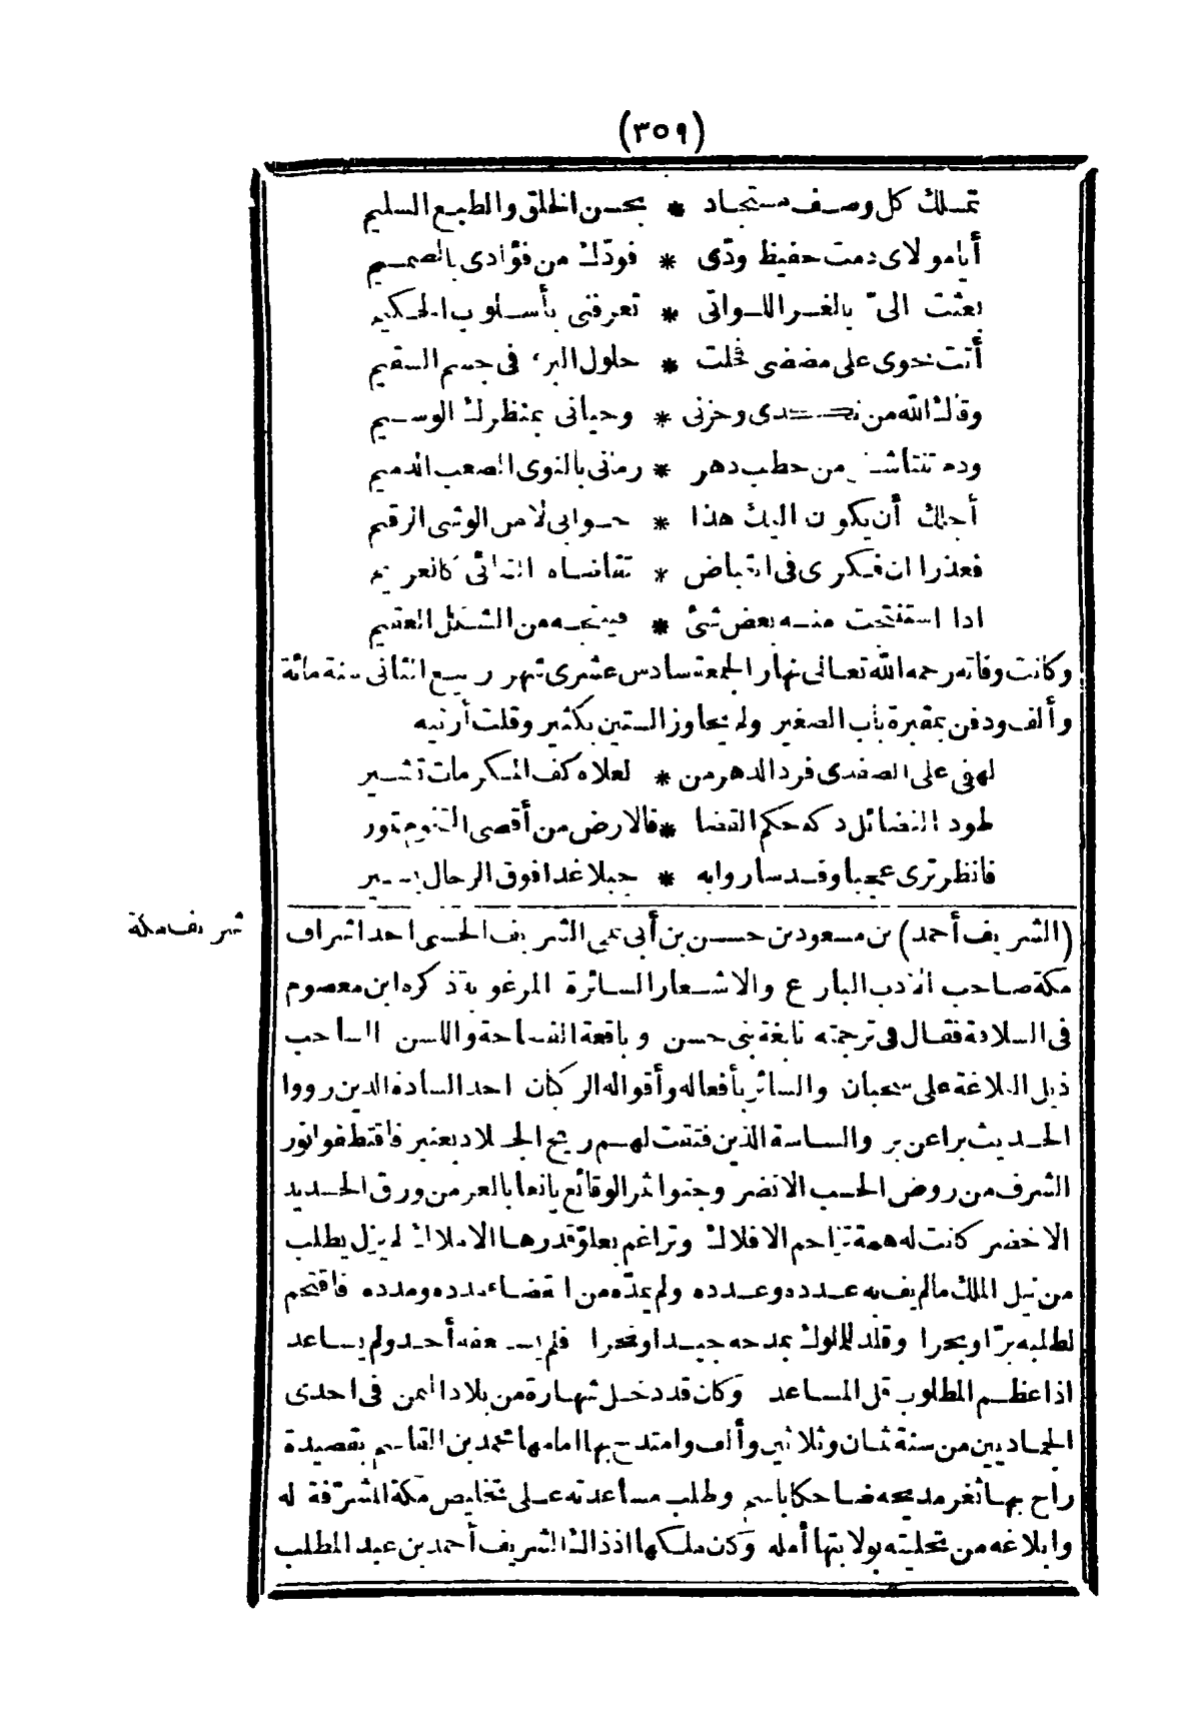 (٣٥٩)
تملك كل وصف مستجاد * بحسن الخلق والطبع السليم
أيا مولاى دمت حفيظ ودّى * فودّك من فؤادى بالصميم
بعثت الىّ بالغر اللواتى * تعرفنى بأسلوب الحكيم
أتت نحوى على مضضى فحلت * حلول البرء فى جسم السقيم
وقاك الله من نكدى وحزنى * وحيانى بمنظرك الوسيم
من خطب دهر * رمانى بالنوى الصعب الذميم
أجلك أن يكون اليك هذا * جوابى لا من الوشى الرقيم
فعذرا ان فكرى فى انقباض * تقاضاه التنائى كالغريم
اذا استفتحت منه بعض شئ * فينتجه من الشكل العقيم
وكانت وفاته رحمه الله تعالى نهار الجمعة سادس عشرى شهر ربيع الثانى سنة مائة
وألف ودفن بمقبرة باب الصغير ولم يجاوز الستين بكثير وقلت أرثيه
لهفى على الصفدى فرد الدهر من * لعلاه كف المكرمات تشير
طود الفضائل دكه حكم القضا * فالارض من أقصى التخوم تمور
فانظر ترى عجبا وقد ساروا به * جبلا غدا فوق الرجال يسير
شريف مكة
(الشريف أحمد) بن مسعود بن حسن بن أبى نمى الشريف الحسنى احد اشراف
مكة صاحب الادب البارع والاشعار السائرة المرغوبة ذكره ابن معصوم
فى السلافة فقال فى ترجمته نابغة بنى حسن وباقعة الفصاحة واللسن الساحب
ذيل البلاغة على سحبان والسائر بأفعاله وأقواله الركبان احد السادة الذين رووا
الحديث برا عن بر والساسة الذين فتقت لهم ريح الجلاد بعنبر فاقتطفوا نور
الشرف من روض الحسب الانضر وجنوا ثمر الوقائع يانعا بالعز من ورق الحديد
الاخضر كانت له همة تزاحم الافلاك وتراغم بعلوّ قدرها الاملاك لم يزل يطلب
من نيل الملك ما لم يف به عدده وعدده ولم يمدّه من القضاء مدده ومدده فاقتحم
لطلبه برّا وبحرا وقلد للملوك بمدحه جيدا ونحرا فلم يسعفه أحد ولم يساعد
اذا عظم المطلوب قل المساعد وكان قد دخل شهارة من بلاد اليمن فى احدى
الجماديين من سنة ثمان وثلاثين وألف وامتدح بها امامها محمد بن القاسم بقصيدة
راح بها ثغر مديحه ضاحكا باسم وطلب مساعدته على تخليص مكة المشرّفة له
وابلاغه من تحليته بولايتها أمله وكان ملكها اذ ذاك الشريف أحمد بن عبد المطلب